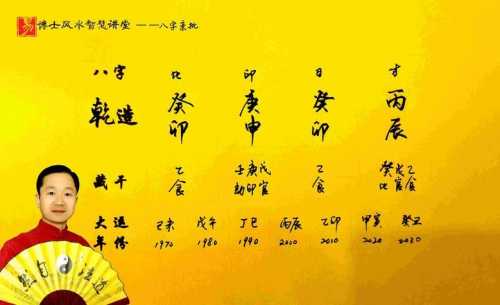 博士风水智慧讲堂 ——八字
八字 比 印 日 才
乾造 癸 庚 癸 丙
卯 申 卯 辰
藏干 乙 壬庚戊 乙 癸戊乙
食 劫印官 食 比官食
大运 己未 戊午 丁巳 丙辰 乙卯 甲寅 癸丑
年份 1970 1980 1990 2000 2010 2020 2030